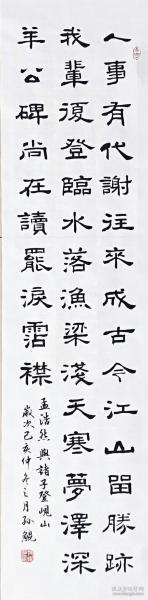 人事有代謝往來成古今江山留勝跡
我輩復登臨水落漁梁淺天寒夢澤深
羊公碑尚在讀罷淚霑襟
孟浩然與諸子登峴山
歲次己亥仲冬之月孫